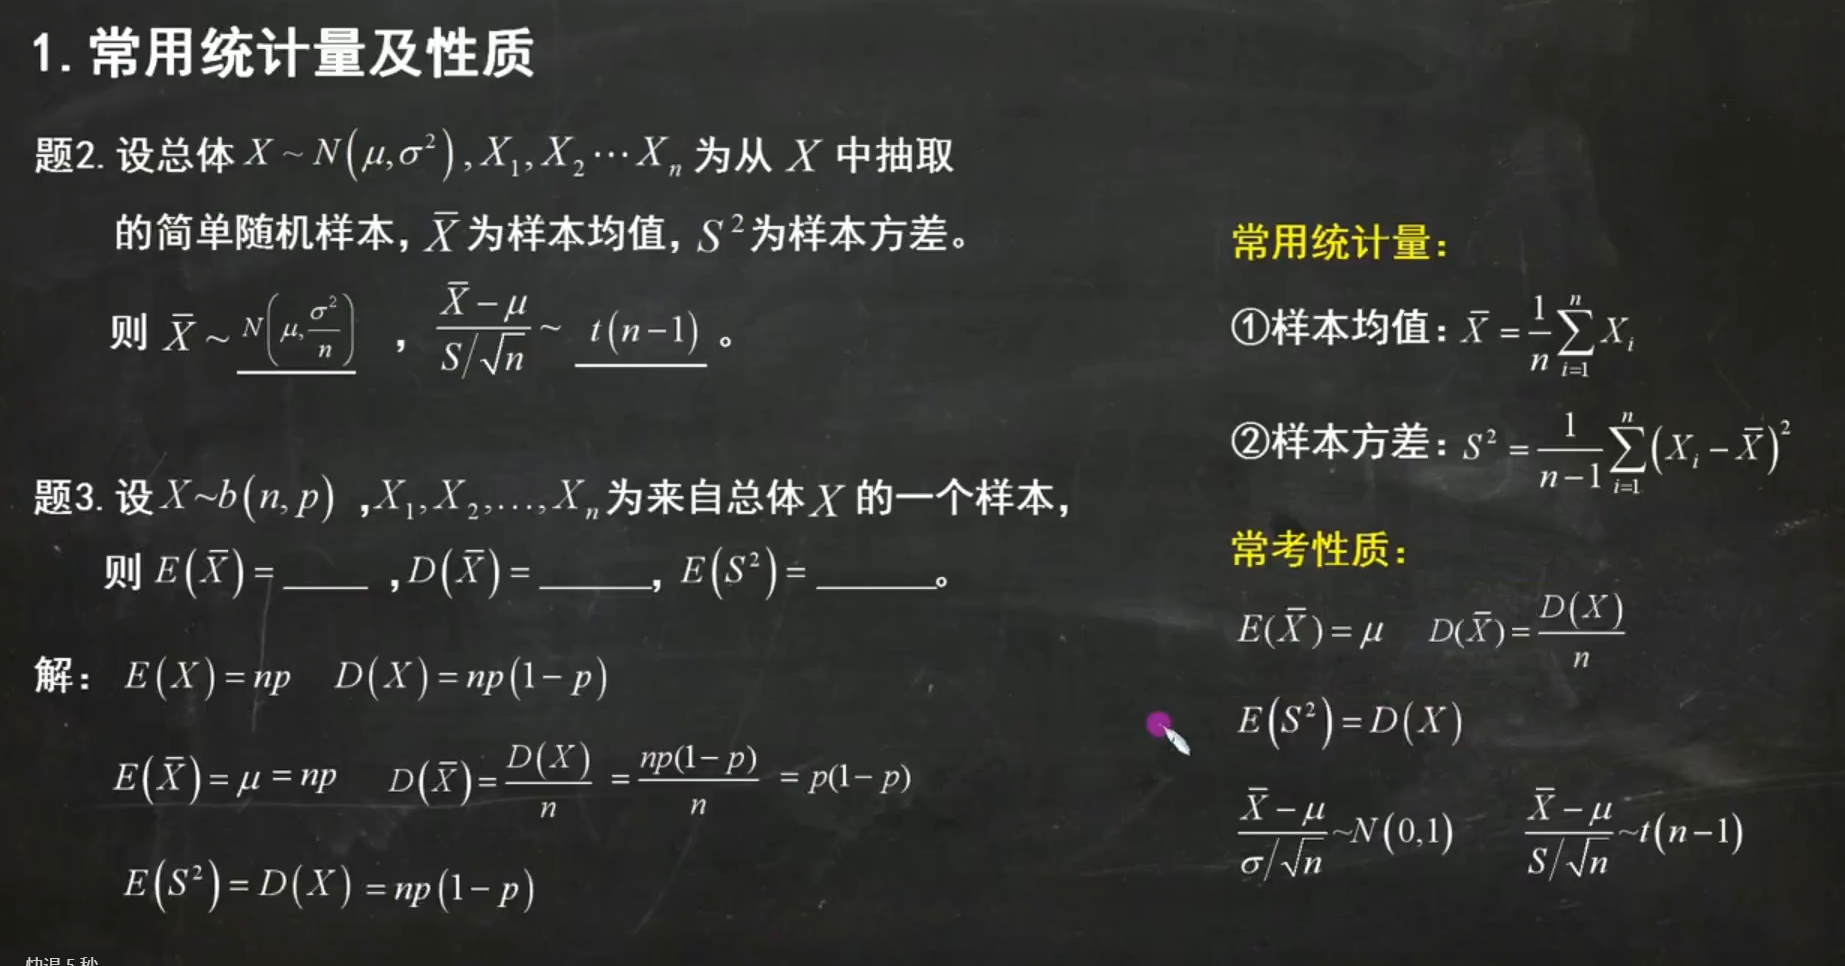 1.常用统计量及性质
题2.设总体 X ~ N(μ,σ²), X₁, X₂ ⋯ Xₙ 为从 X 中抽取
的简单随机样本, X̄ 为样本均值, S² 为样本方差。
则 X̄ ~ N(μ, σ²/n) , (X̄ − μ)/(S/√n) ~ t(n−1) 。
题3.设 X~b(n, p) ,X₁, X₂,…, Xₙ 为来自总体 X 的一个样本,
则 E(X̄) = ____ , D(X̄) = _____, E(S²) = ______。
解: E(X) = np D(X) = np(1− p)
E(X̄) = μ = np D(X̄) = D(X)/n = np(1− p)/n = p(1− p)
E(S²) = D(X) = np(1− p)
常用统计量:
①样本均值: X̄ = 1/n ∑ᵢ₌₁ⁿ Xᵢ
②样本方差: S² = 1/(n−1) ∑ᵢ₌₁ⁿ (Xᵢ − X̄)²
常考性质:
E(X̄) = μ D(X̄) = D(X)/n
E(S²) = D(X)
(X̄ − μ)/(σ/√n) ~N(0,1) (X̄ − μ)/(S/√n) ~t(n−1)
快退 5 秒